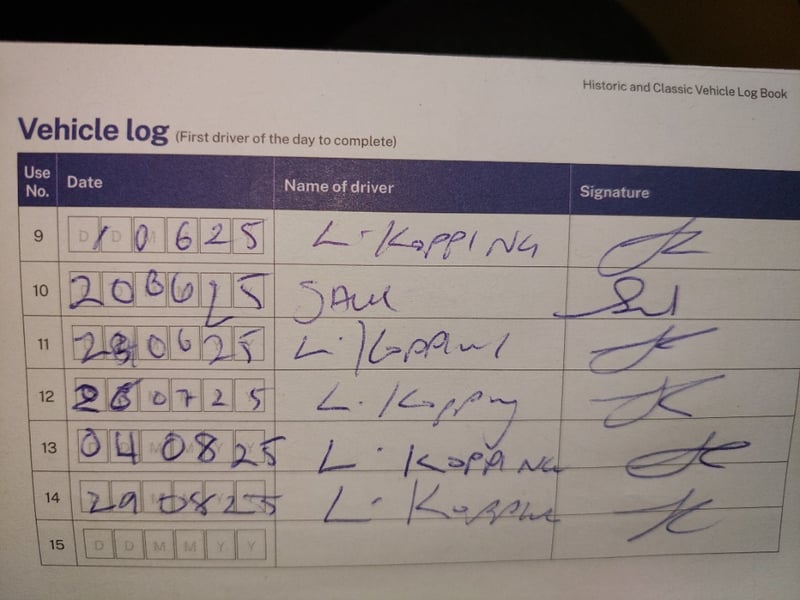 Historic and Classic Vehicle Log Book
Vehicle log (First driver of the day to complete)
Use No. Date Name of driver Signature
9 10625 L. KOPPING
10 200625
11 0625 L. Kopping
12 0725 L. Kopping
13 040825 L. KOPPING
14 290825 L. Kopping
15 D D M M Y Y